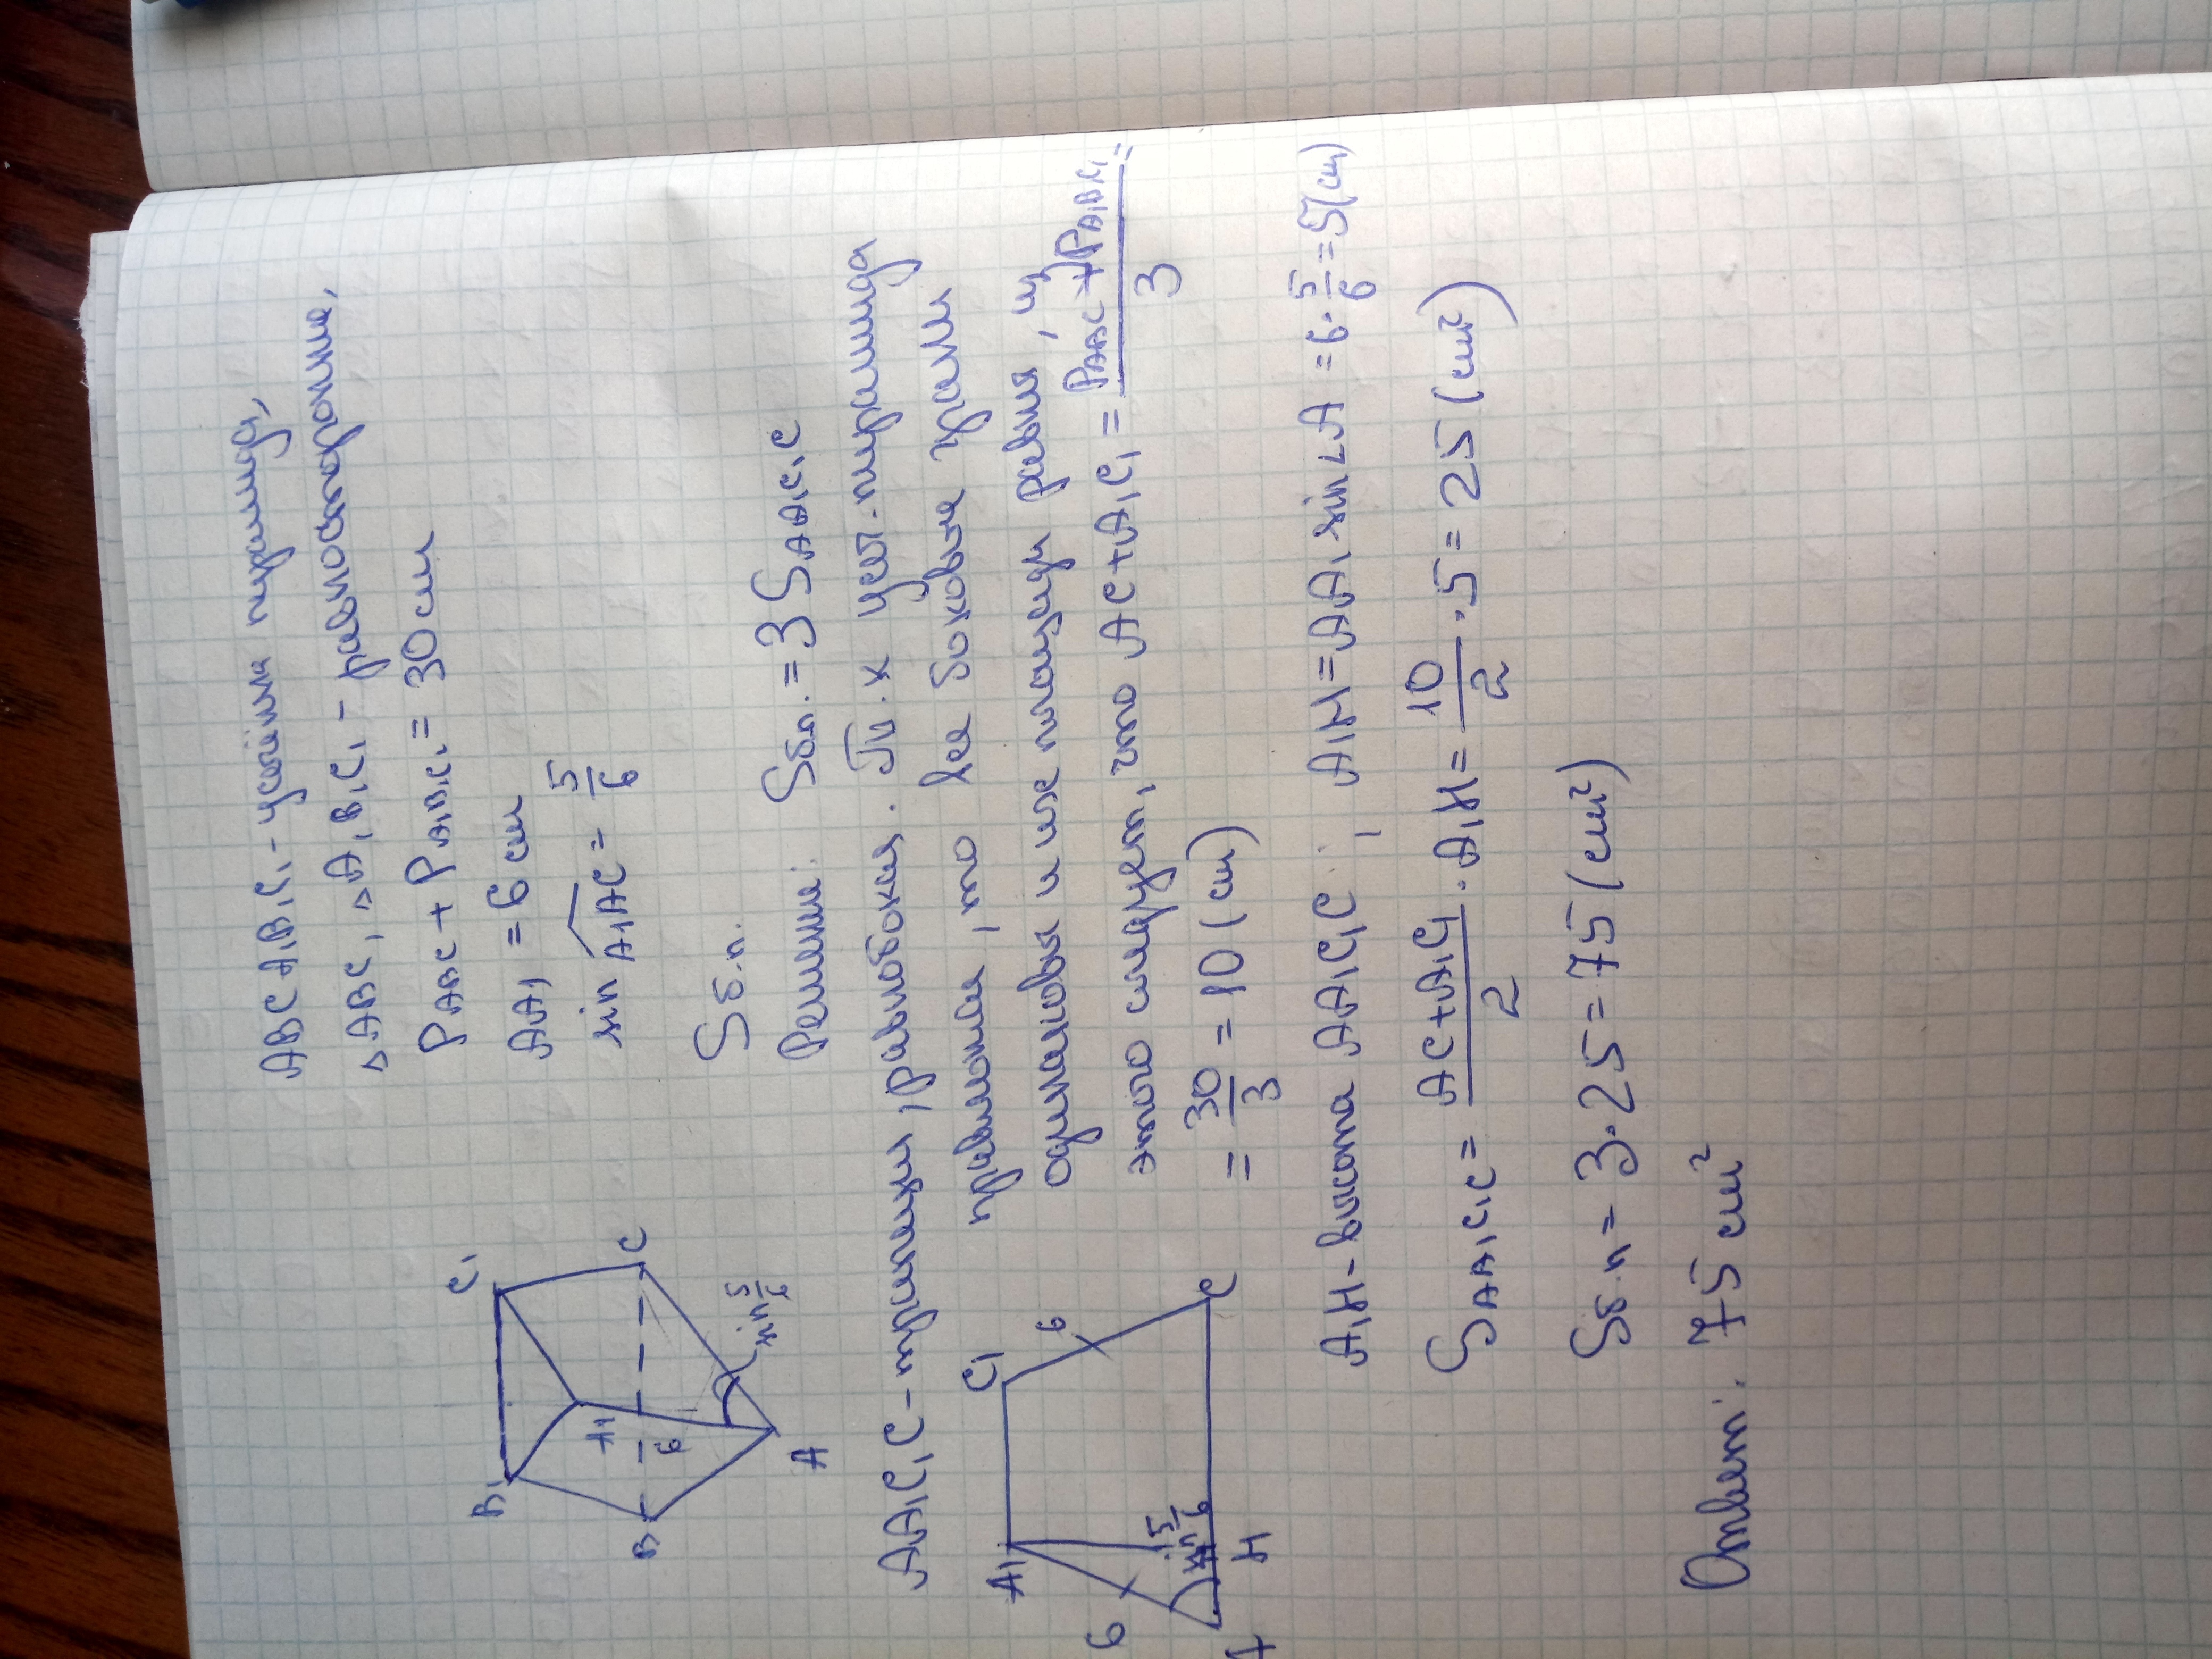 ABCA₁B₁C₁ - усечённая пирамида,
△ABC, △A₁B₁C₁ - равносторонние,
P ABC + P A₁B₁C₁ = 30 см
AA₁ = 6 см
sin A₁AC = 5/6
Sб.п.
B₁
C₁
A₁
B
6
C
A
sin 5/6
Решение: Sб.п. = 3 S AA₁C₁C
AA₁C₁C - трапеция, равнобокая. Т.к усеч. пирамида
правильная, то все боковые грани
одинаковы и их площади равны, из
этого следует, что AC + A₁C₁ = (P△ABC + P A₁B₁C₁)/3 =
= 30/3 = 10 (см)
A₁
C₁
6
6
sin 5/6
A
H
C
A₁H - высота AA₁C₁C; A₁H = AA₁ sin∠A = 6 · 5/6 = 5 (см)
S AA₁C₁C = (AC + A₁C₁)/2 · A₁H = 10/2 · 5 = 25 (см²)
Sб.п = 3 · 25 = 75 (см²)
Ответ: 75 см²